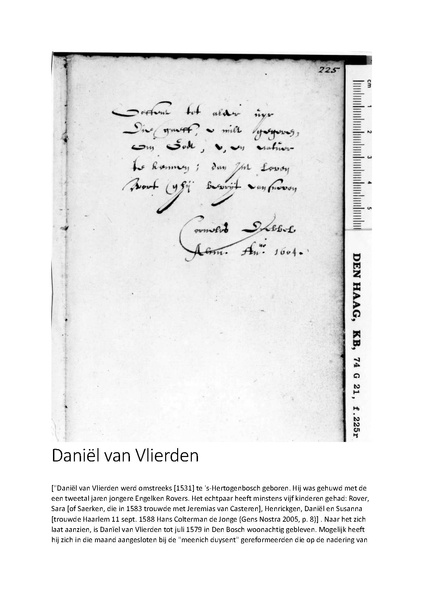 225
tot alder uyr
Die gaeff, u milt gegeven,
Om Godt, u, en natuer
te kennen; dan sal Leven
Wort ghij bevrijt van sneven
Cornelis Drebbel
Alcm. Anno 1604.
cm
1
2
3
4
5
DEN HAAG, KB, 74 G 21, f.225r
Daniël van Vlierden
["Daniël van Vlierden werd omstreeks [1531] te 's-Hertogenbosch geboren. Hij was gehuwd met de
een tweetal jaren jongere Engelken Rovers. Het echtpaar heeft minstens vijf kinderen gehad: Rover,
Sara [of Saerken, die in 1583 trouwde met Jeremias van Casteren], Henrickgen, Daniël en Susanna
[trouwde Haarlem 11 sept. 1588 Hans Colterman de Jonge (Gens Nostra 2005, p. 8)] . Naar het zich
laat aanzien, is Daniel van Vlierden tot juli 1579 in Den Bosch woonachtig gebleven. Mogelijk heeft
hij zich in die maand aangesloten bij de "meenich duysent" gereformeerden die op de nadering van